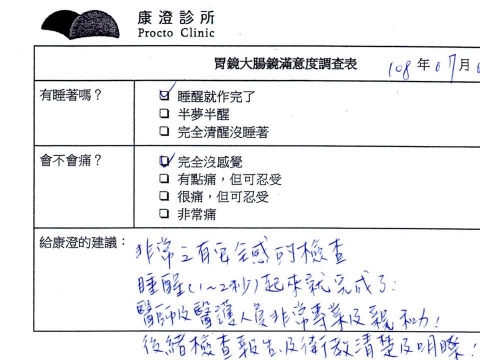 康澄診所
Procto Clinic
胃鏡大腸鏡滿意度調查表
108年07月
有睡著嗎？
睡醒就作完了
半夢半醒
完全清醒沒睡著
會不會痛？
完全沒感覺
有點痛，但可忍受
很痛，可忍受
非常痛
給康澄的建議：
非常之有安全感的檢查
睡醒(1~2秒)起來就完成了!
醫師及醫護人員非常專業及親和力!
後續檢查報告及衛教清楚及明瞭!